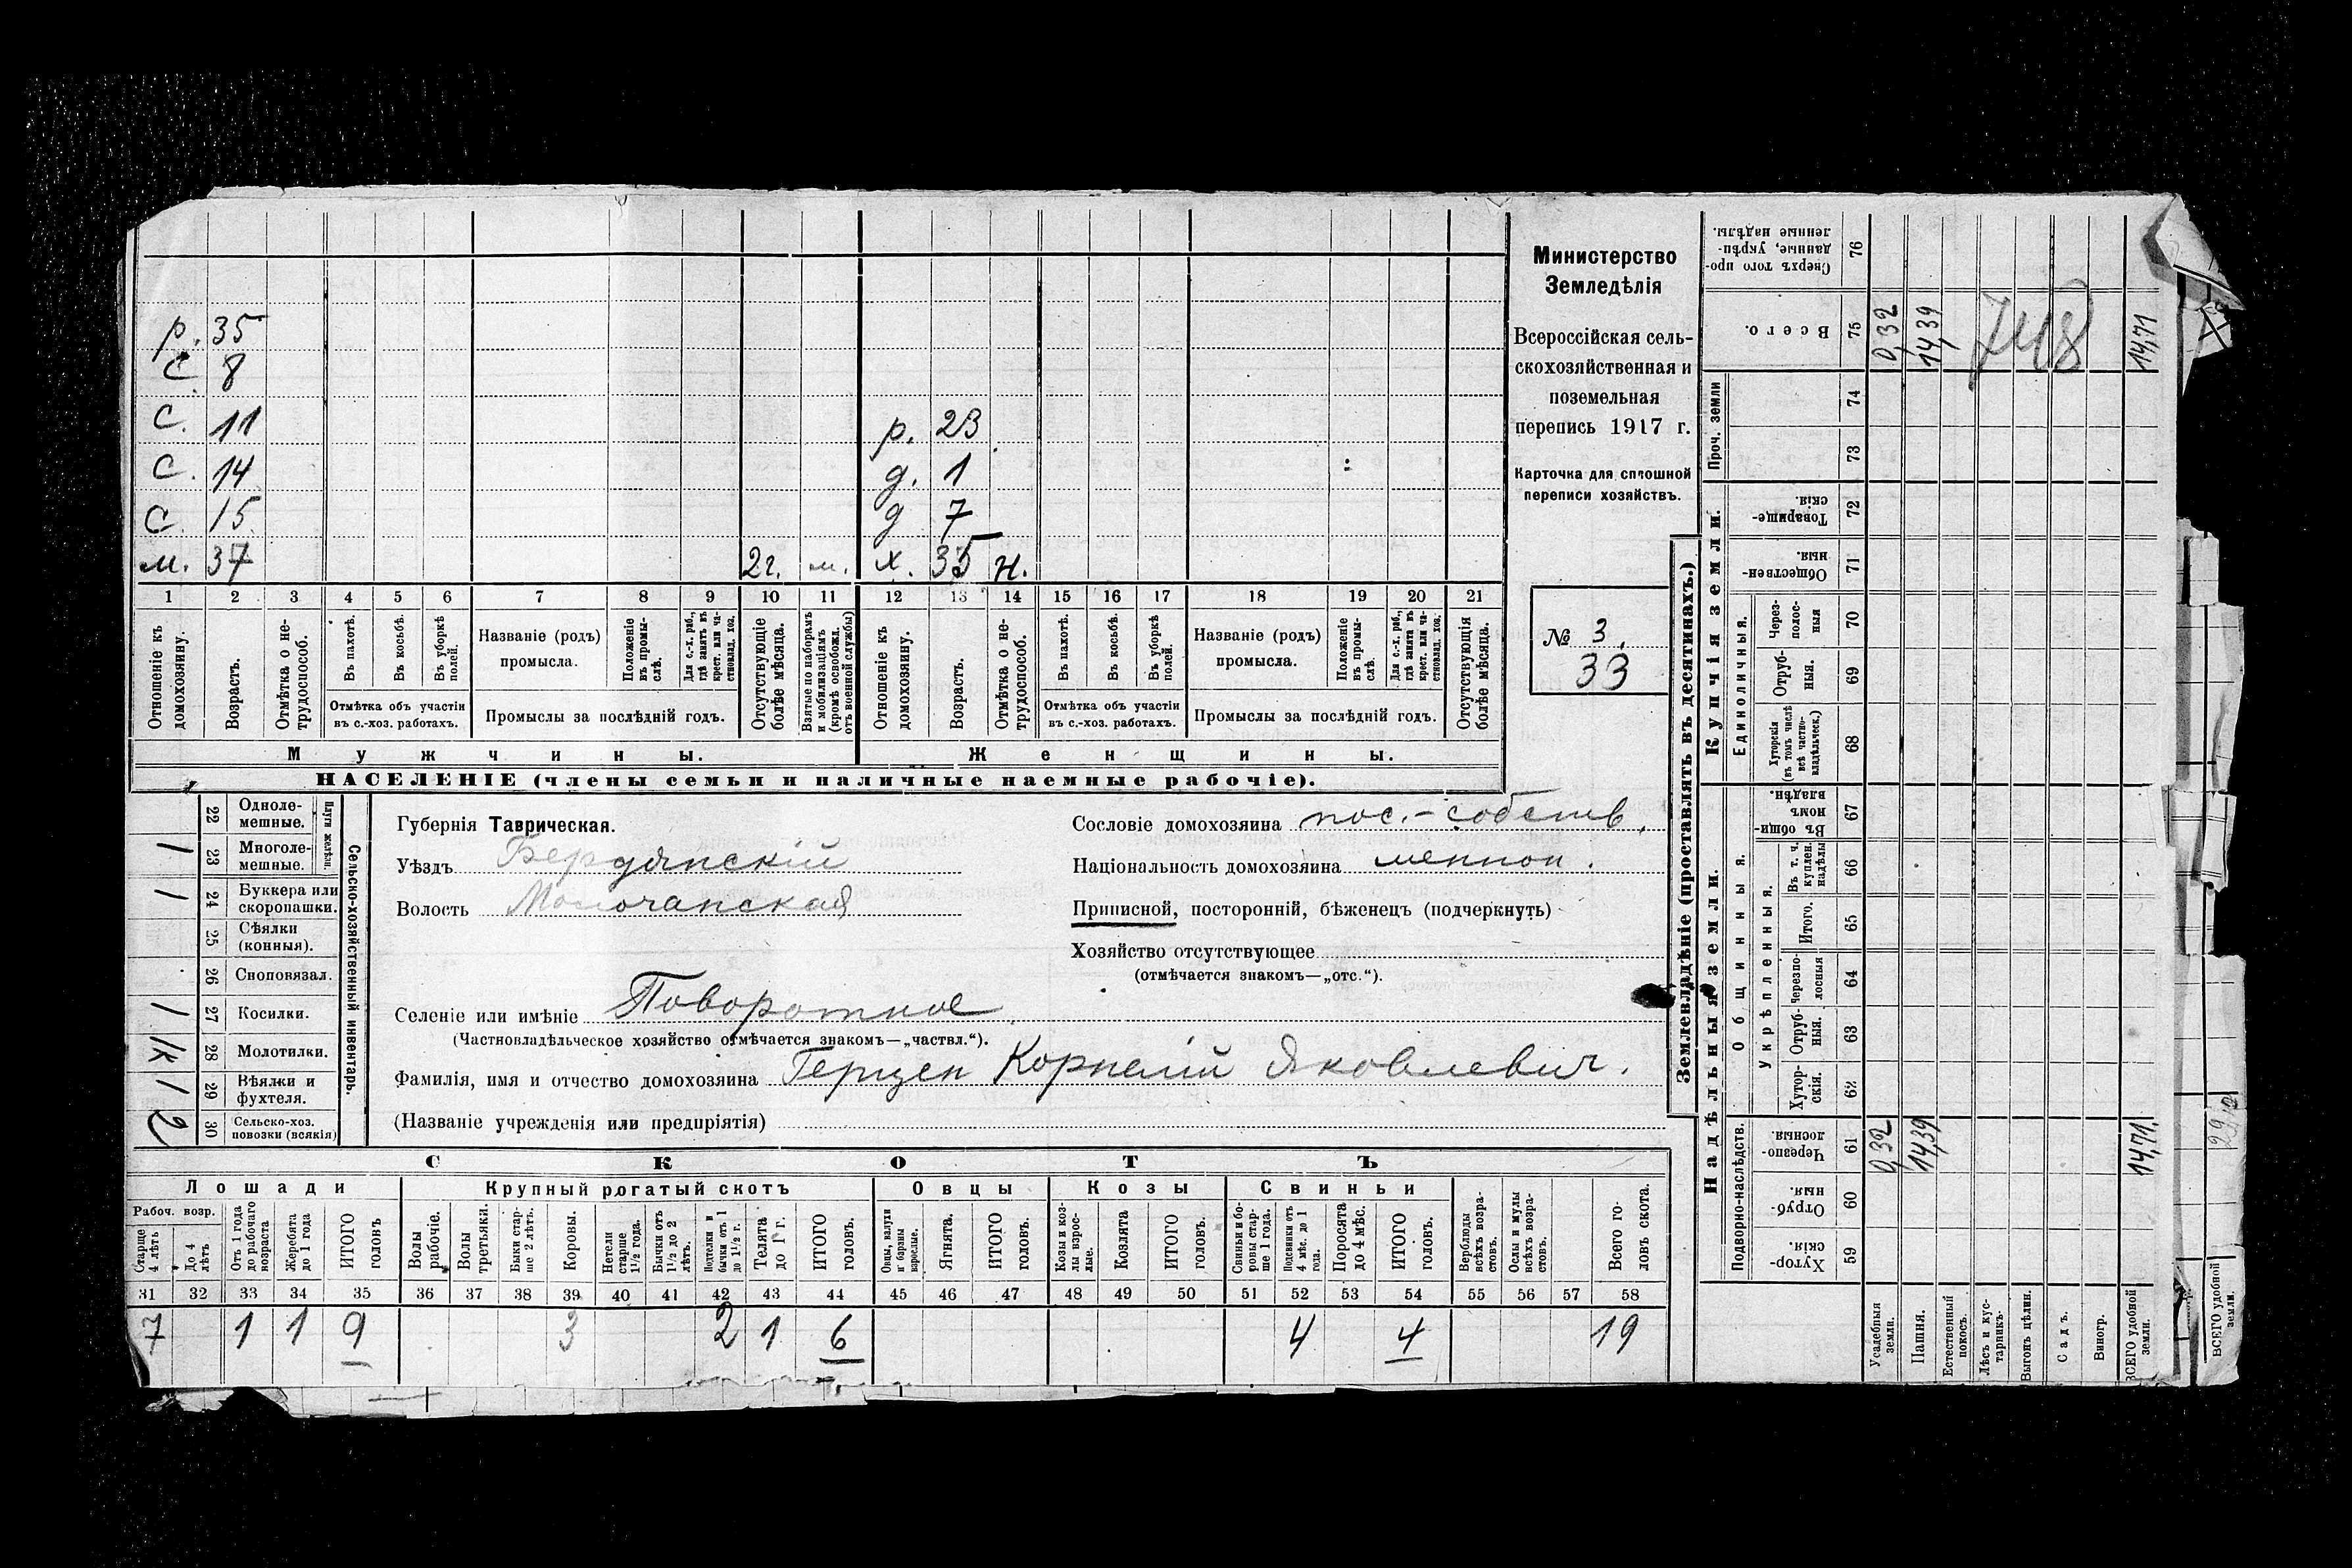 р. 35
с. 8
с. 11 р. 23
с. 14 д. 1
с. 15 д 7
м. 37 2г. м. х. 35 н.
1 2 3 4 5 6 7 8 9 10 11 12 13 14 15 16 17 18 19 20 21
Отношеніе къ домохозяину.
Возрастъ.
Отмѣтка о нетрудоспособ.
Въ пахотѣ.
Въ косьбѣ.
Въ уборкѣ полей.
Отмѣтка объ участіи въ с.-хоз. работахъ.
Названіе (родъ) промысла.
Положеніе въ промыслѣ.
Для с.-х. раб., гдѣ занятъ въ крест. или частновлад. хоз.
Промыслы за послѣдній годъ.
Отсутствующіе болѣе мѣсяца.
Взятые по наборамъ и мобилизаціямъ (кромѣ освобожд. отъ военной службы)
Отношеніе къ домохозяину.
Возрастъ.
Отмѣтка о нетрудоспособ.
Въ пахотѣ.
Въ косьбѣ.
Въ уборкѣ полей.
Отмѣтка объ участіи въ с.-хоз. работахъ.
Названіе (родъ) промысла.
Положеніе въ промыслѣ.
Для с.-х. раб., гдѣ занята въ крест. или частновлад. хоз.
Промыслы за послѣдній годъ.
Отсутствующія болѣе мѣсяца.
Мужчины. Женщины.
НАСЕЛЕНІЕ (члены семьи и наличные наемные рабочіе).
Министерство
Земледѣлія
Всероссійская сель-
скохозяйственная и
поземельная
перепись 1917 г.
Карточка для сплошной
переписи хозяйствъ.
№ 3.
33
Сельско-хозяйственный инвентарь.
Плуги желѣзн.
22 Одноле-
мешные.
1 23 Многоле-
мешные.
1 24 Буккера или
скоропашки.
25 Сѣялки
(конныя).
26 Сноповязал.
1 27 Косилки.
1к 28 Молотилки.
1 29 Вѣялки и
фухтеля.
2 30 Сельско-хоз.
повозки (всякія)
Губернія Таврическая.
Уѣздъ Бердянскій
Волость Молочанская
Сословіе домохозяина пос.-собств.
Національность домохозяина меннон.
Приписной, посторонній, бѣженецъ (подчеркнуть)
Хозяйство отсутствующее
(отмѣчается знакомъ—„отс.“).
Селеніе или имѣніе Поворотное
(Частновладѣльческое хозяйство отмѣчается знакомъ—„частвл.“).
Фамилія, имя и отчество домохозяина Герцен Корнелій Яковлевич.
(Названіе учрежденія или предпріятія)
СКОТЪ
Лошади Крупный рогатый скотъ Овцы Козы Свиньи
Рабоч. возр.
Старше 4 лѣтъ
До 4 лѣтъ
Отъ 1 года до рабочаго возраста
Жеребята до 1 года
ИТОГО головъ
Волы рабочіе.
Волы третьяки.
Быки старше 2 лѣтъ.
Коровы.
Нетели старше 1½ года.
Бычки отъ 1½ до 2 лѣтъ.
Подтелки и бычки отъ 1 до 1½ г.
Телята до 1 г.
ИТОГО головъ.
Овцы, валухи и бараны взрослые.
Ягнята.
ИТОГО головъ.
Козы и козлы взрослые.
Козлята
ИТОГО головъ.
Свиньи и боровы старше 1 года.
Подсвинки отъ 4 мѣс. до 1 года.
Поросята до 4 мѣс.
ИТОГО головъ.
Верблюды всѣхъ возрастовъ.
Ослы и мулы всѣхъ возрастовъ.
Всего головъ скота.
31 32 33 34 35 36 37 38 39 40 41 42 43 44 45 46 47 48 49 50 51 52 53 54 55 56 57 58
7 1 1 9 3 2 1 6 4 4 19
Землевладѣніе (проставлять въ десятинахъ.)
Надѣльныя земли. Купчія земли.
Подворно-наслѣдств.
Общинныя.
Укрѣпленныя.
Единоличныя.
Проч. земли
Хуторскія. 59
Отрубныя. 60
Черезполосныя. 61
Хуторскія. 62
Отрубныя. 63
Черезполосныя 64
Итого. 65
Въ т. ч. куплен. надѣлы 66
Въ общинномъ владѣн. 67
Хуторскія (въ томъ числѣ всѣ частновладѣльческ.) 68
Отрубныя. 69
Черезполосныя 70
Общественныя. 71
Товарищескія. 72
73
74
Всего. 75
Сверхъ того проданные, укрѣпленные надѣлы. 76
Усадебныя земли. 0,32 0,32
Пашня. 14,39 14,39
Естественный покосъ.
Лѣсъ и кустарникъ.
Выгонъ цѣлин.
Садъ.
Виногр.
ВСЕГО удобной земли. 14,71. 14,71
ВСЕГО удобной земли.